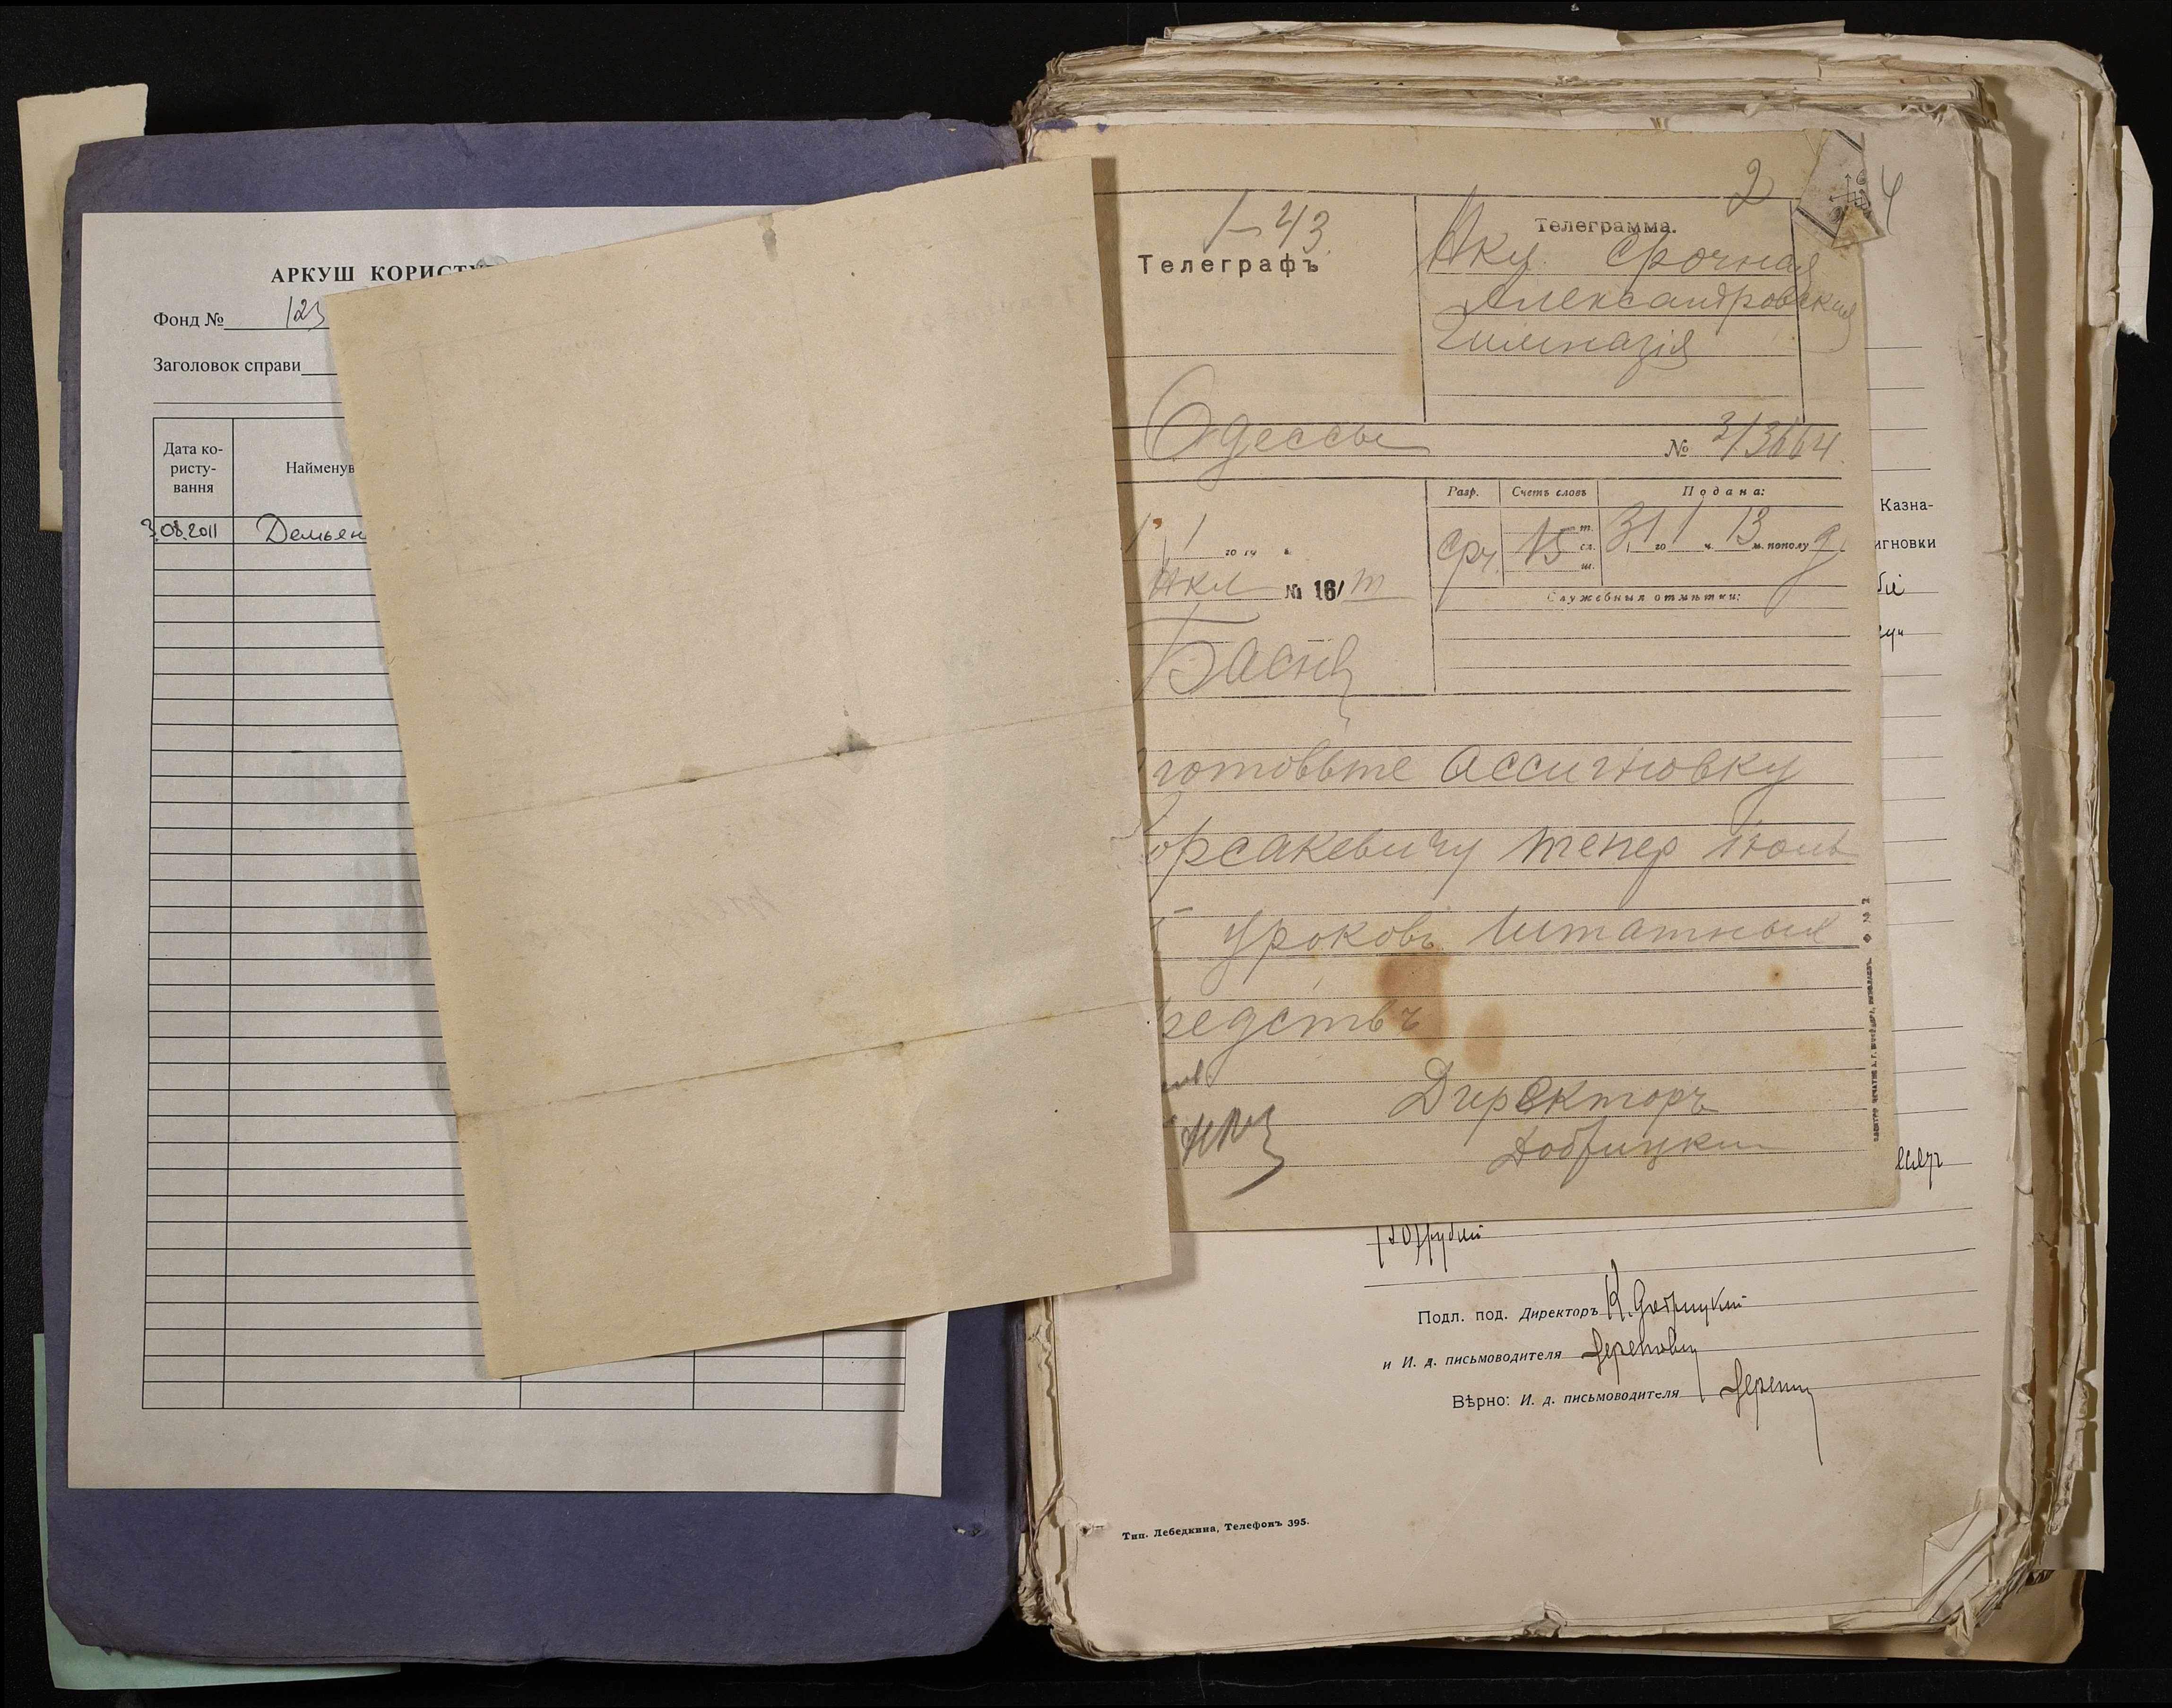 АРКУШ КОРИСТУ
Фонд № 123
Заголовок справи
Дата ко-
ристу-
вання
Найменув
3.08.2011 Демьян
2
4
1-43
Телеграфъ
Телеграмма.
срочная
Александровская
Гимназія
Одессы
№ 3/3664
Разр.
Счетъ словъ
Подана:
1 1
го
Срч.
15
т.
сл.
ш.
31 го 1 ч. 13 м. пополу д
№ 16/ т
Служебныя отмѣтки:
готовьте ассигновку
орсакевичу тепер июнь
уроковъ штатныя
редствъ
Директоръ
Добрицкий
№ 2
Казна-
игновки
рублей
Подл. под. Директоръ К. Добрицкій
и И. д. письмоводителя
Вѣрно: И. д. письмоводителя
Тип. Лебедкина, Телефонъ 395.